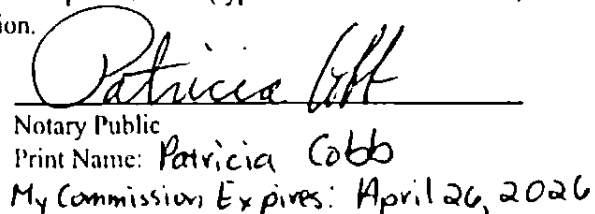 ion.
Patricia Cobb
Notary Public
Print Name: Patricia Cobb
My Commission Expires: April 26, 2026